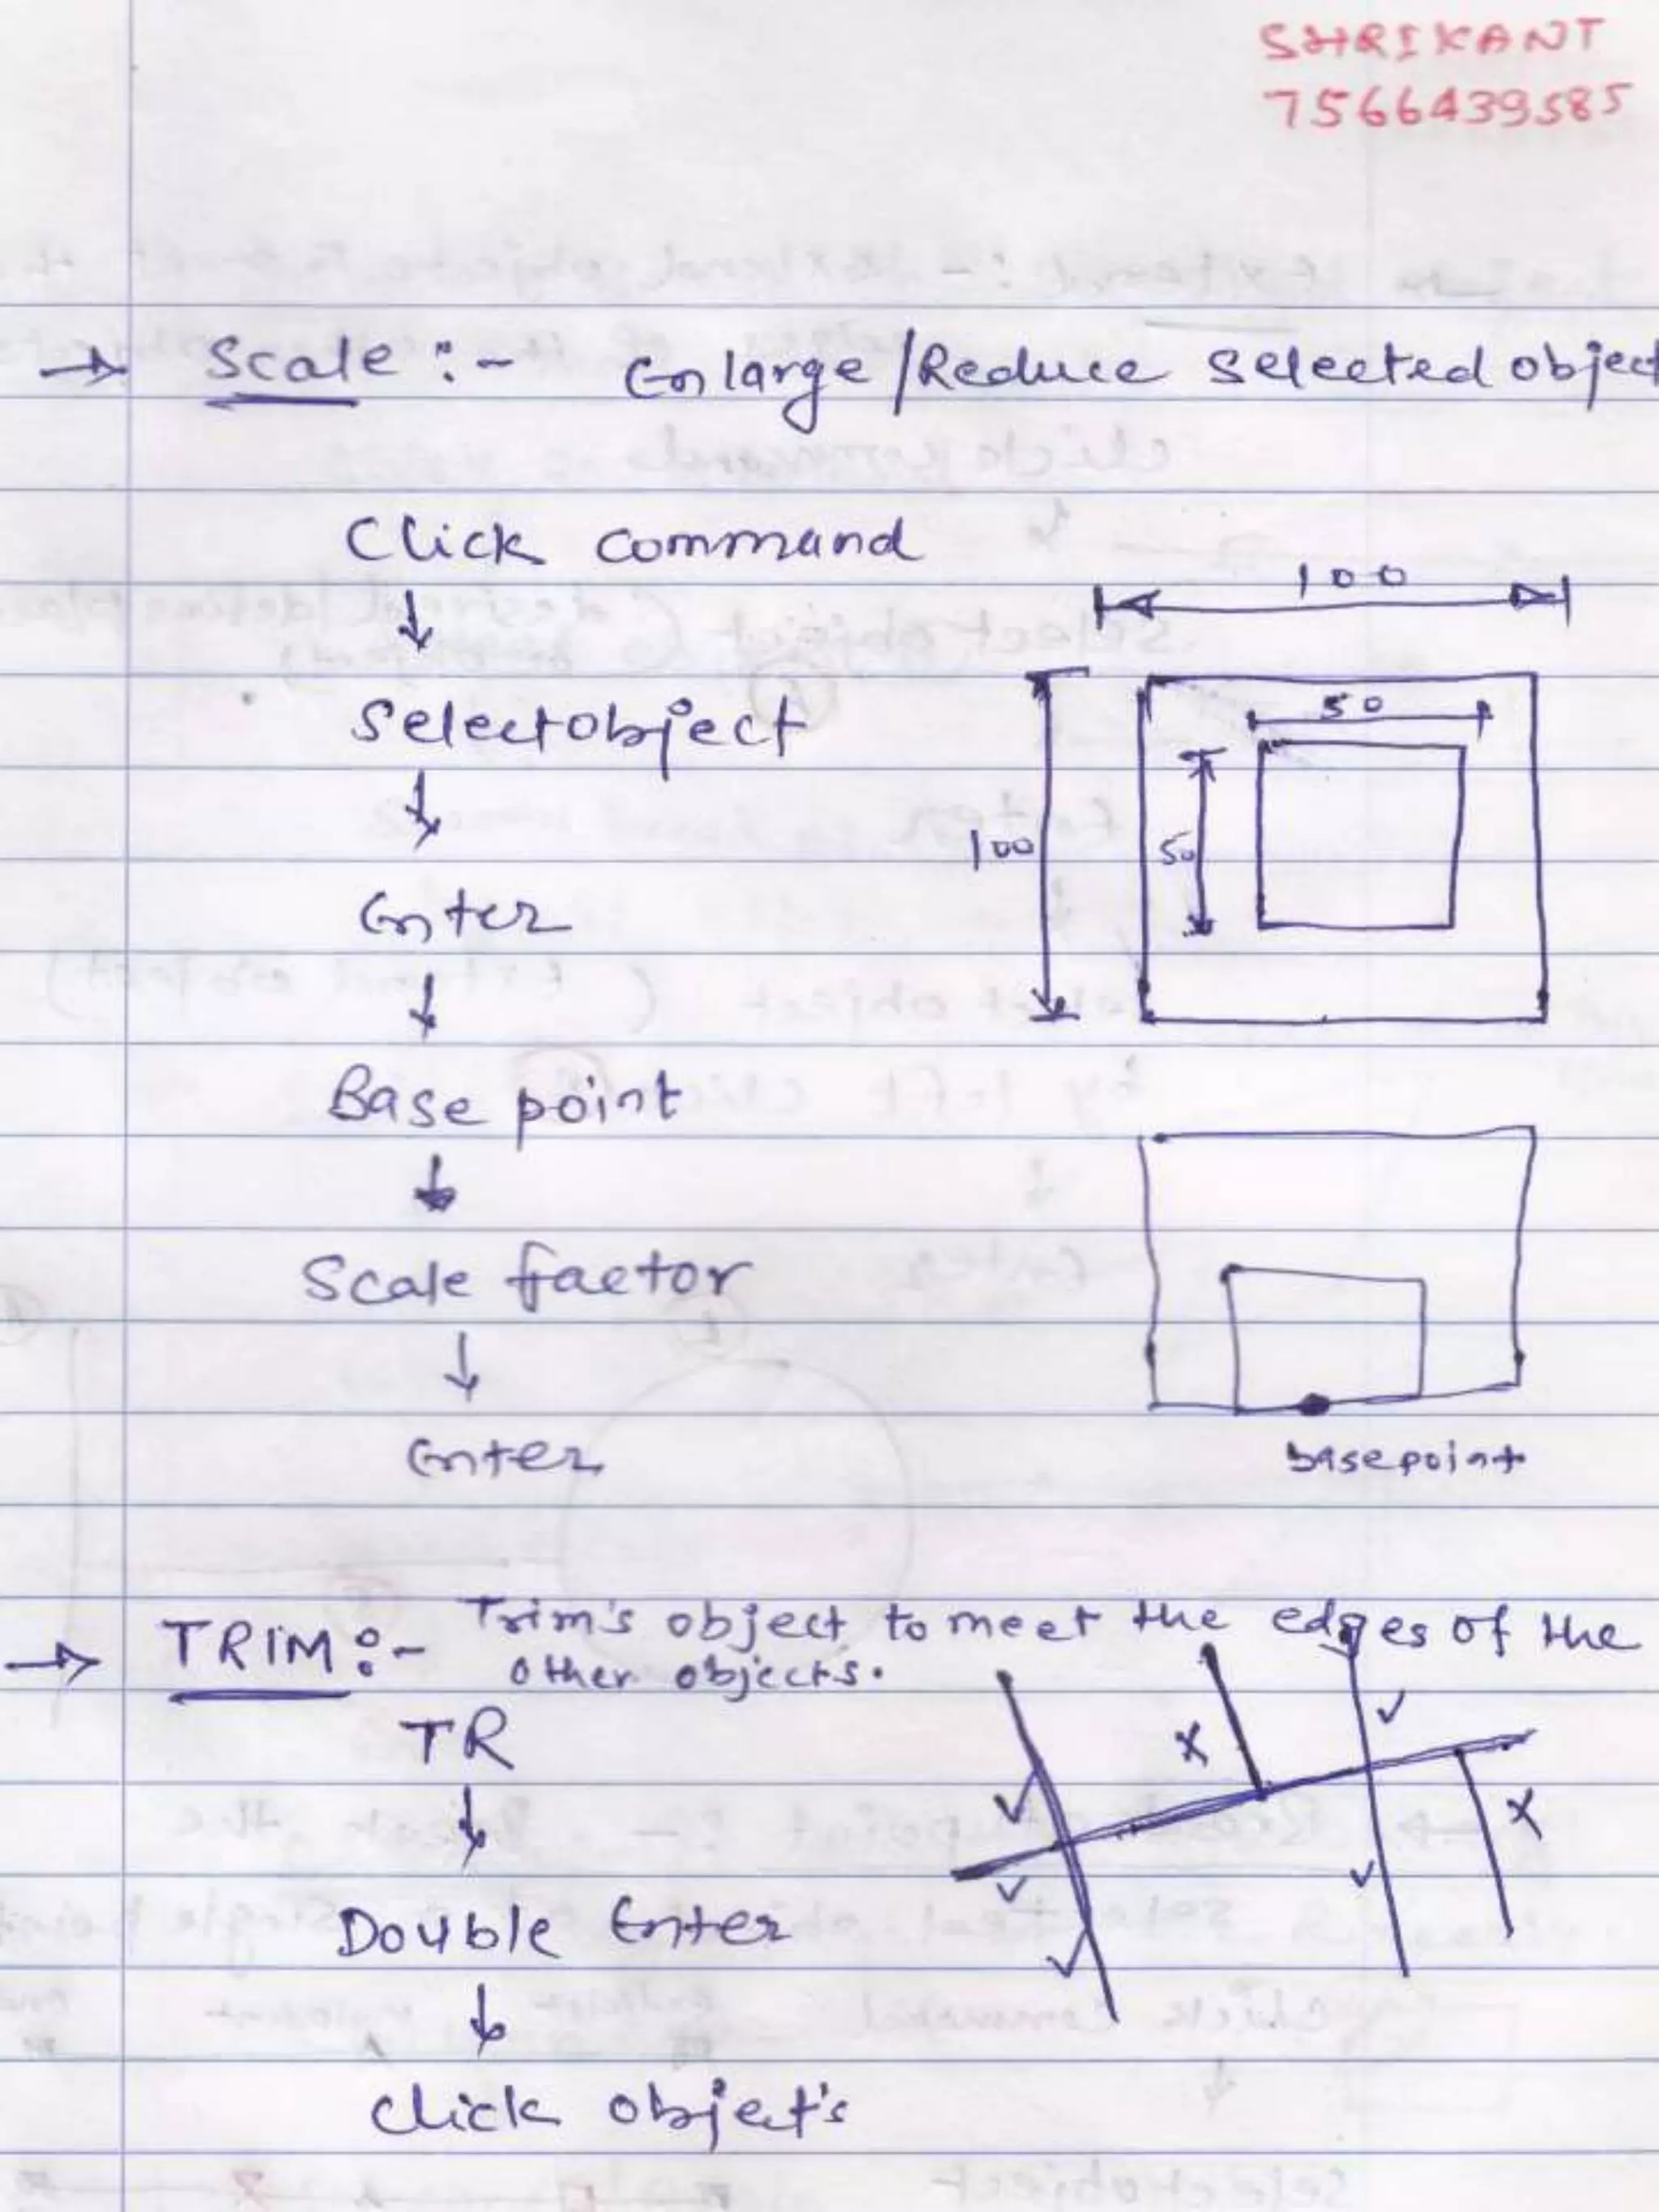 SHRIKANT
7566439585
→ Scale :- Enlarge/Reduce selected object
Click command
↓
100
Select object
50
↓
100
50
Enter
↓
Base point
↓
Scale factor
↓
Enter
basepoint
→ TRIM :- Trim's object to meet the edges of the
other objects.
TR
↓
Double Enter
↓
Click object's